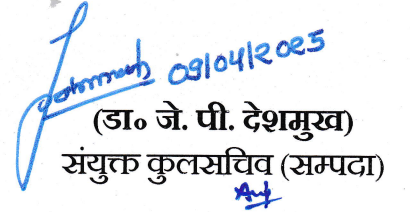 09/04/2025
(डा० जे. पी. देशमुख)
संयुक्त कुलसचिव (सम्पदा)